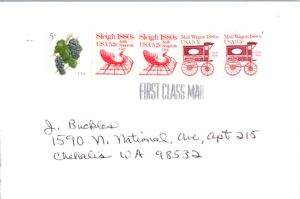 5¢
Sleigh 1880s
USA 5.2c
Sleigh 1880s
USA 5.2c
Mail Wagon 1880s
USA 9.3c
Mail Wagon 1880s
USA 9.3c
FIRST CLASS MAIL
J. Buckles
1590 N. National Ave, apt 215
Chehalis WA 98532